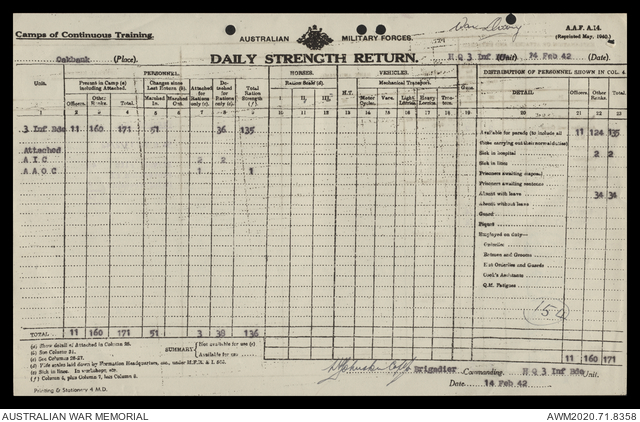 Camps of Continuous Training.
AUSTRALIAN MILITARY FORCES.
A.A.F. A.14.
(Reprinted May, 1940.)
Oakbank (Place).
DAILY STRENGTH RETURN.
H Q 3 Inf (Unit) 14 Feb 42 (Date).
Unit.
PERSONNEL.
HORSES.
VEHICLES.
DISTRIBUTION OF PERSONNEL SHOWN IN COL. 4
Present in Camp (a) including Attached.
Changes since Last Return (b).
Attached for Rations only (c).
Detached for Rations only (c).
Total Ration Strength (f).
Ration Scale (d).
H.T.
Mechanical Transport.
Guns.
DETAIL
Officers. Other Ranks. Total.
Marched In. Marched Out.
I. II. III.
Motor Cycles. Vans. Light Lorries. Heavy Lorries. Tractors.
Officers. Other Ranks. Total.
1 2 3 4 5 6 7 8 9 10 11 12 13 14 15 16 17 18 19 20 21 22 23
3 Inf Bde 11 160 171 51 36 135
Available for parade (to include all those carrying out their normal duties) 11 124 135
Attached
A.I.C 2 2
Sick in hospital 2 2
Sick in lines
A A O C 1 1
Prisoners awaiting disposal
Prisoners awaiting sentence
Absent with leave 34 34
Absent without leave
Guard
Piquet
Employed on duty—
Orderlies
Batmen and Grooms
Hut Orderlies and Guards
Cook's Assistants
Q.M. Fatigues
154
TOTAL 11 160 171 51 3 38 136
11 160 171
(a) Show detail of Attached in Column 20.
(b) See Column 21.
(c) See Columns 26-27.
SUMMARY
Not available for use (e)
Available for use
(e) Sick in lines. In workshops, etc.
(f) Column 4, plus Column 7, less Column 8.
Printing & Stationery 4 M.D.
Brigadier Commanding. H Q 3 Inf Bde Unit.
Date 14 Feb 42
AUSTRALIAN WAR MEMORIAL
AWM2020.71.8358